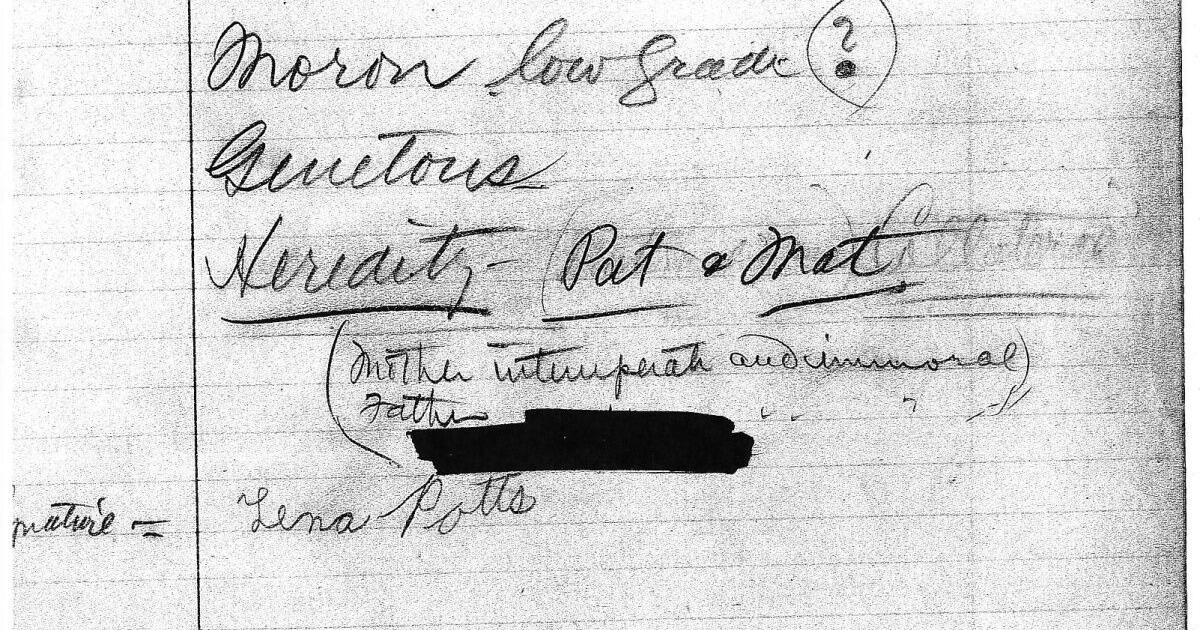 Moron low grade ?
Genetous
Heredity - (Pat & Mat
(Mother intemperate and immoral)
Father " " "
nature = Lena Potts